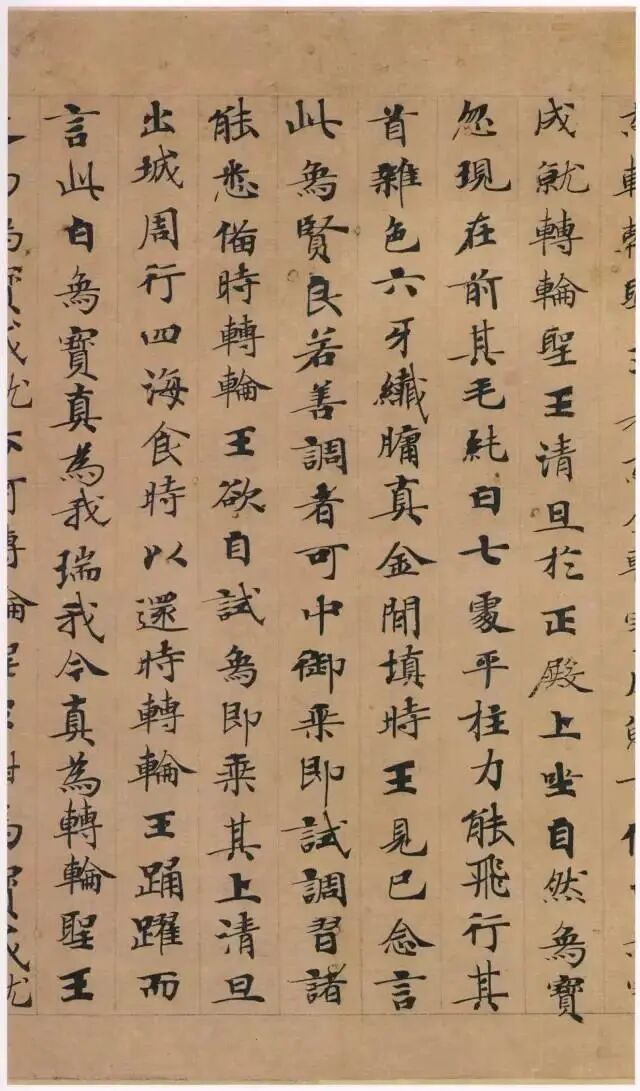 成就轉輪聖王清旦於正殿上坐自然象寶
忽現在前其毛純白七處平柱力能飛行其
首雜色六牙纖𦟛真金間填時王見已念言
此象賢良若善調者可中御乘即試調習諸
能悉俻時轉輪王欲自試象即乘其上清旦
出城周行四海食時以還時轉輪王踊躍而
言此白象寶真為我瑞我今真為轉輪聖王
是为象寶成就云何轉輪聖王紺馬寶成就